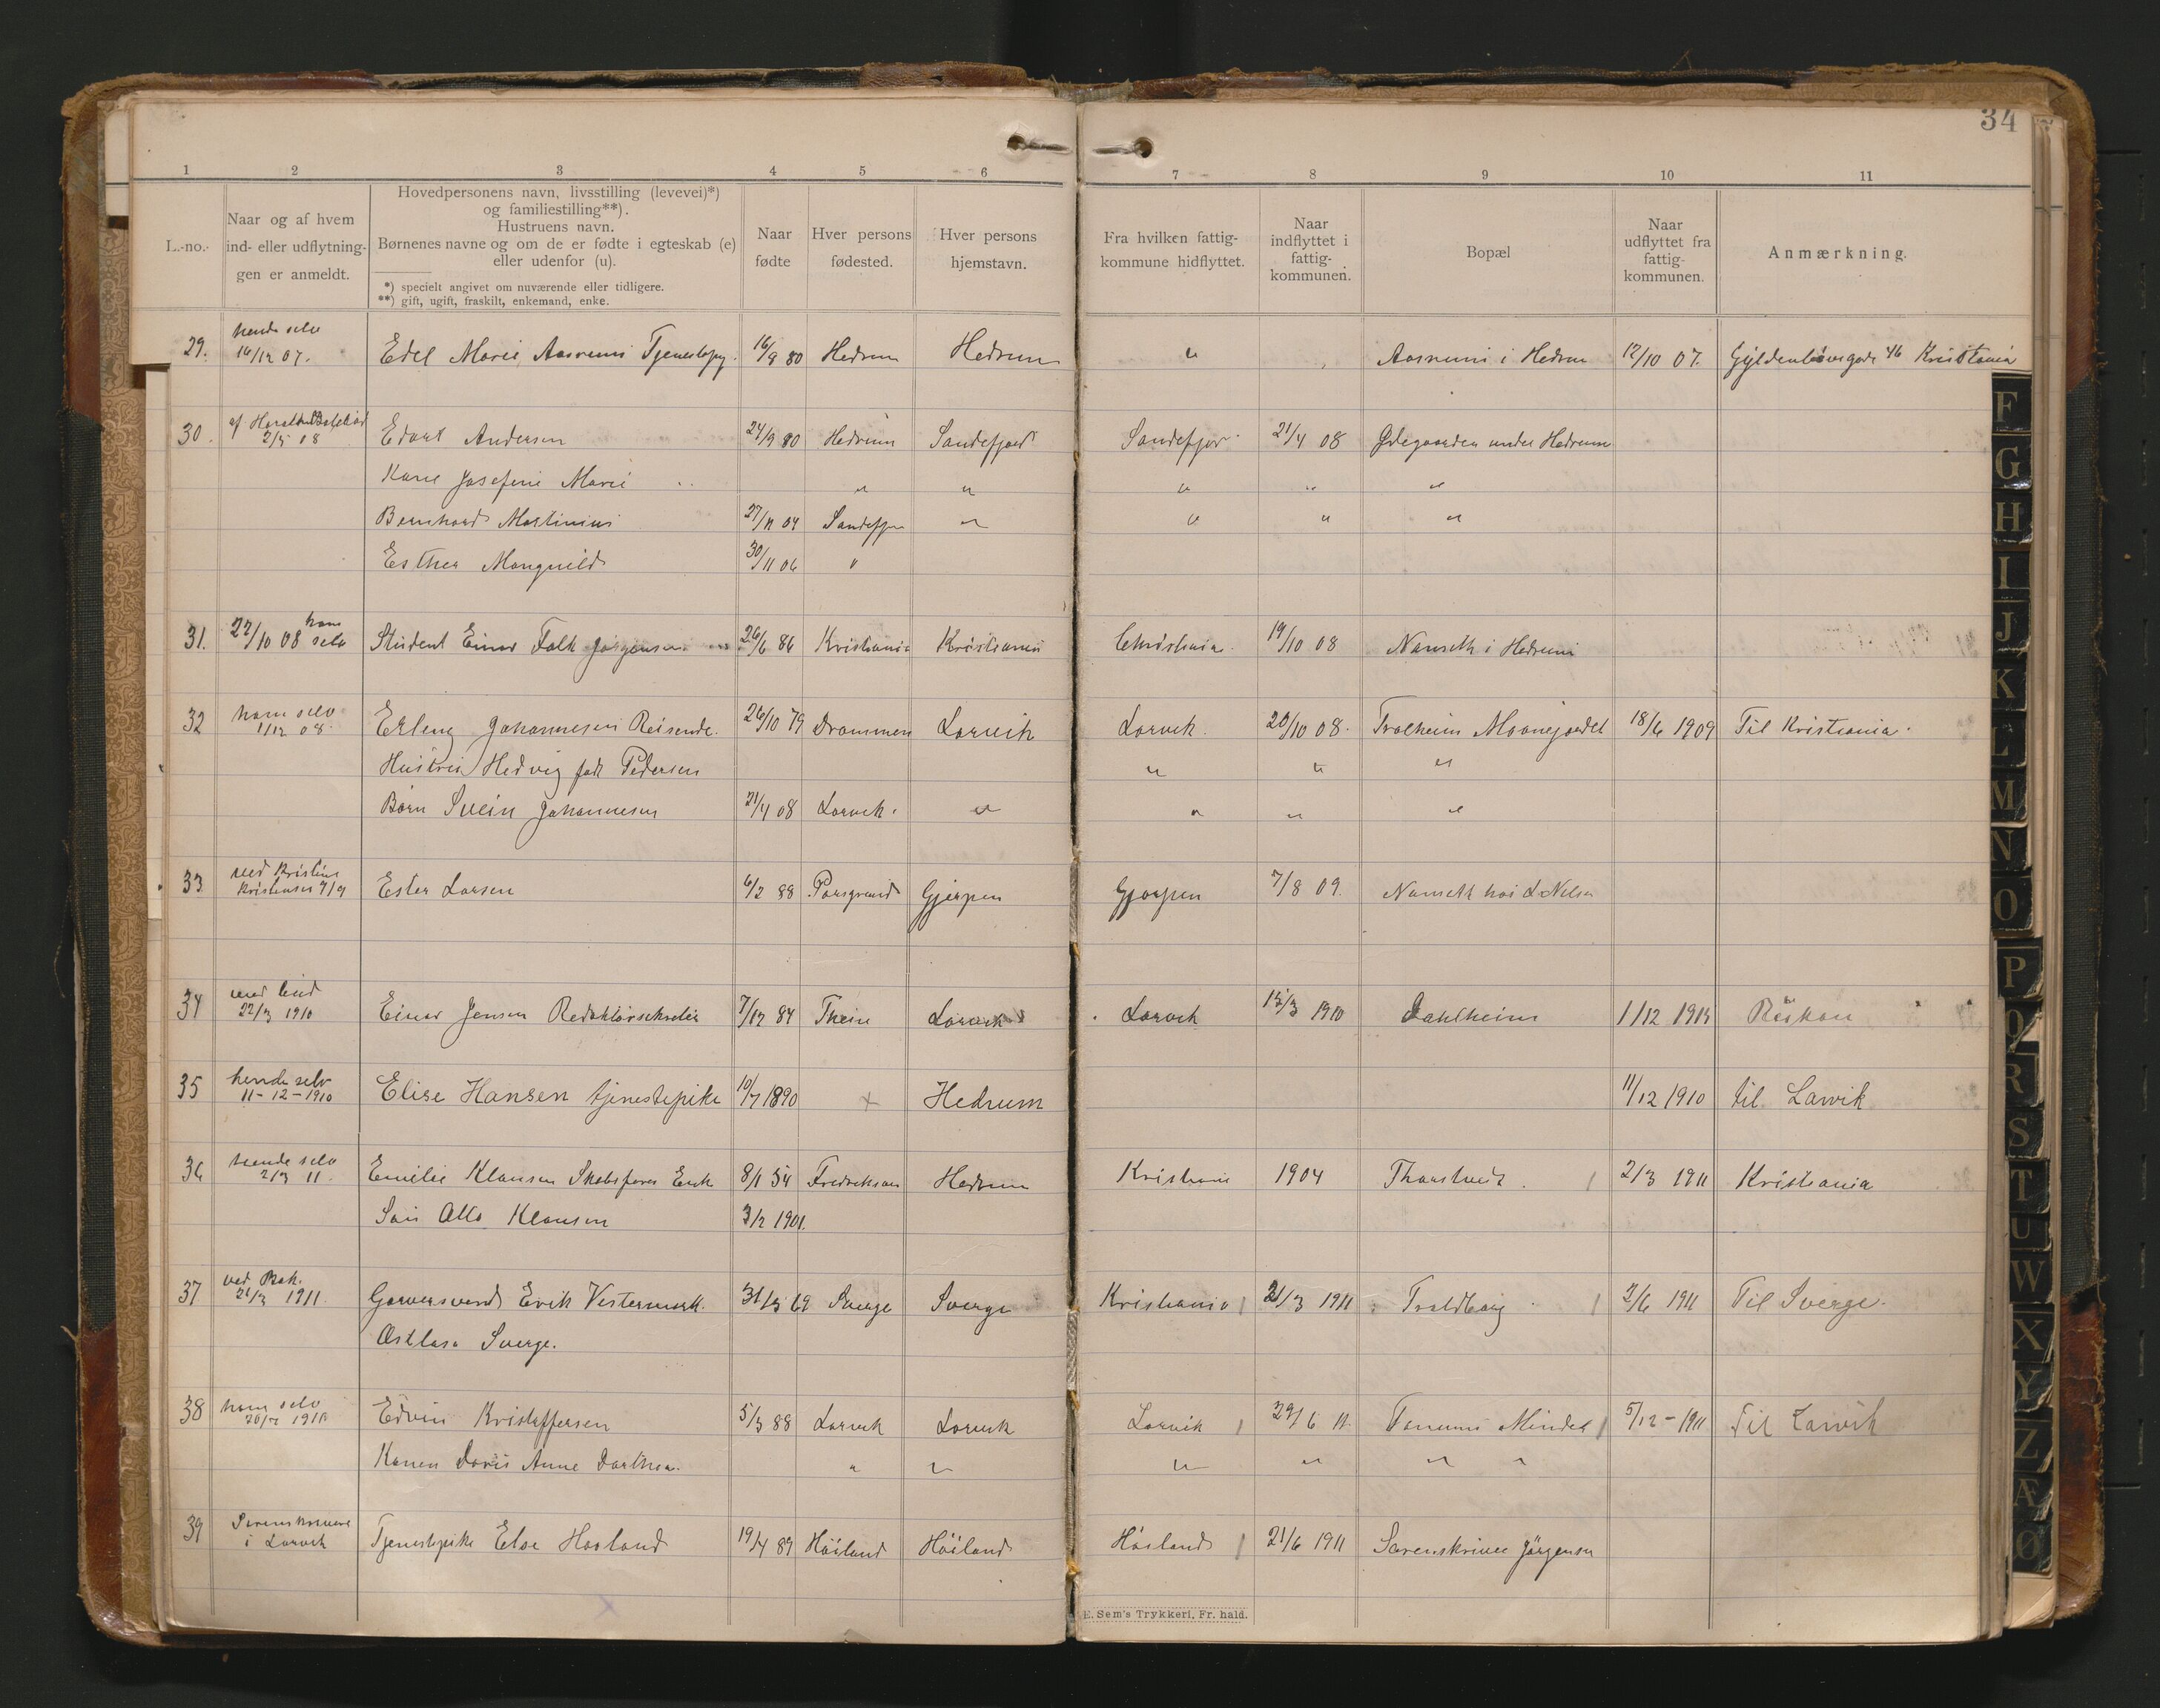 34
1 2 3 4 5 6 7 8 9 10 11
L.-no.
Naar og af hvem
ind- eller udflytnin-
gen er anmeldt.
Hovedpersonens navn, livsstilling (levevei)*)
og familiestilling**).
Hustruens navn.
Børnenes navne og om de er fødte i egteskab (e)
eller udenfor (u).
*) specielt angivet om nuværende eller tidligere.
**) gift, ugift, fraskilt, enkemand, enke.
Naar
fødte
Hver persons
fødested.
Hver persons
hjemstavn.
Fra hvilken fattig-
kommune hidflyttet.
Naar
indflyttet i
fattig-
kommunen.
Bopæl
Naar
udflyttet fra
fattig-
kommunen.
Anmærkning.
hende selv
29. 16/12 07. Edel Marie Aasrum Tjenestepg. 16/9 80 Hedrum Hedrum " Aasrum i Hedrum 12/10 07. Gyldenløvesgade 46 Kristiania
30. af 2/5 08 Edart Andersen 24/9 80 Hedrum Sandefjord Sandefjor 21/4 08 Ødegaarden under Hedrum
Kone Josefine Marie " " " " "
Bernhard Martinius 27/11 04 Sandefjor " " " "
Esther Mangnild 30/11 06 "
ham
31. 22/10 08 selv Student Einar Falk Jørgensen 26/6 86 Kristiania Kristiania Christiania. 19/10 08 Nanseth i Hedrum
ham selv
32 1/12 08. Erling Johannesen Reisende. 26/10 79 Drammen Larvik Larvik. 20/10 08. Tralheim Moanejordet 18/6 1909 Til Kristiania.
Hustru Hedvig født Pedersen " " "
Barn Svein Johannesen 21/4 08 Larvik. " " " "
ved Kristine
33 Kristensen 7/9 Ester Larsen 6/2 88 Porsgrund Gjerpen Gjerpen 7/8 09. Nanseth hos L. Nilsen
med bud
34 22/3 1910 Einar Jensen Redaktørsekretær 7/12 84 Skien Larvik Larvik 15/3 1910 Dahlheim 1/12 1915 Rjukan
hende selv
35 11-12-1910 Elise Hansen tjenestepike 10/7 1890 + Hedrum 11/12 1910 til Larvik
hende selv
36 2/3 11. Emilie Klausen Skibsfører Enke 8/1 54 Fredrikson Hedrum Kristiania 1904 Thorstvedt. 2/3 1911 Kristiania
Søn Otto Klausen 3/2 1901.
ved Bak.
37 21/3 1911. Garversvend Erik Vestermark. 31/3 69 Sverge Sverge Kristiania 21/3 1911 Traldberg 2/6 1911 Til Sverge.
Østlasa Sverge.
ham selv
38 1911 Edvin Kristoffersen 5/3 88 Larvik Larvik Larvik 29/6 11. Tanums Mindet 5/12-1911 Til Larvik
Konen Doris Anne Dorthea. " " " " " "
Sorenskriveren
39 i Larvik Tjenestepike Else Haaland 19/4 89 Høiland Høiland Høiland 21/6 1911 Sorenskriver Jørgensen
E. Sem's Trykkeri, Fr. hald.
F
G
H
I
J
K
L
M
N
O
P
Q
R
S
T
U
W
X
Y
Z
Æ
Ø